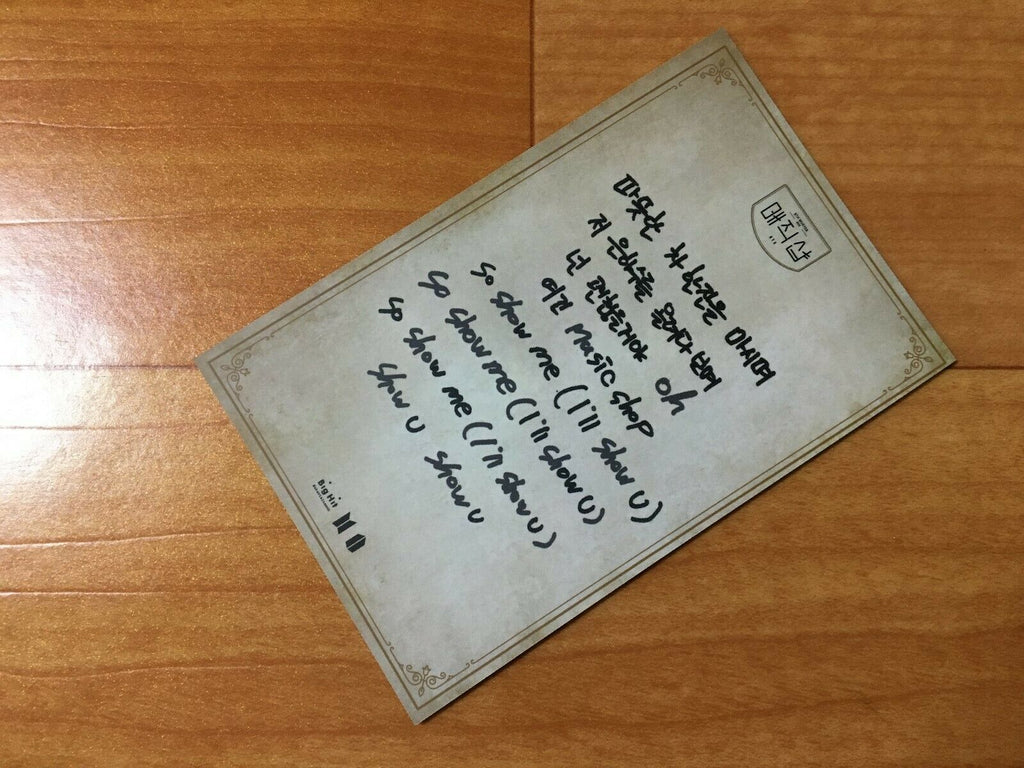 매직샵
따뜻한 차 한잔을 마시며
저 은하수를 올려다 보며
넌 괜찮을거야 oh
여긴 Magic shop
So show me (I'll show U)
So show me (I'll show U)
So show me (I'll show U)
Show U show U
BigHit